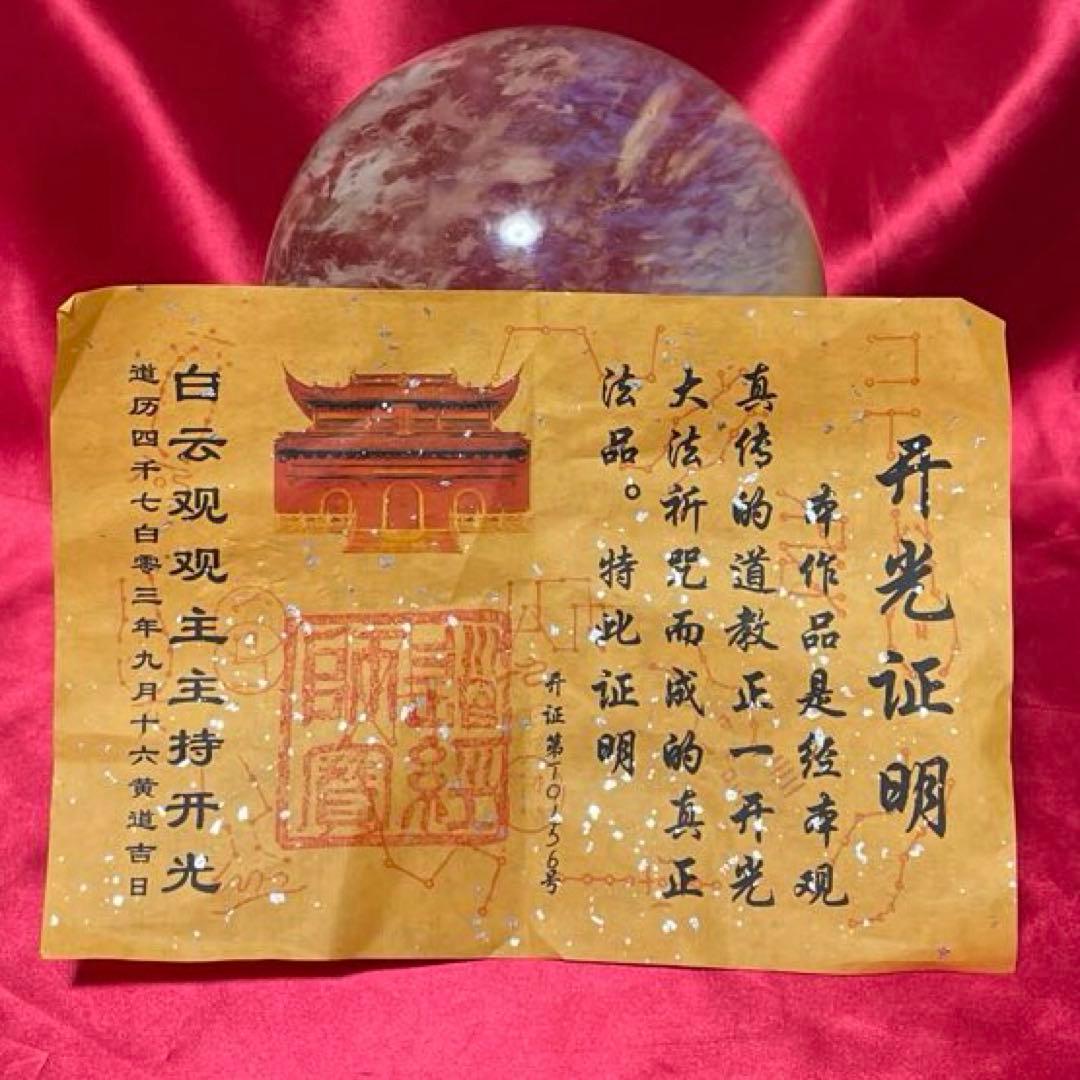 开光证明
本作品是经本观
真传的道教正一开光
大法祈咒而成的真正
法品。特此证明
开证第T0156号
道經
師寶
白云观观主主持开光
道历四千七白零三年九月十六黄道吉日